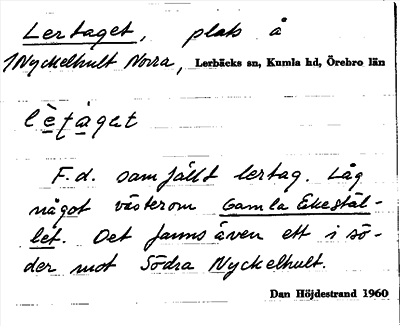 Lertaget, plats å
1Nyckelhult Norra, Lerbäcks sn, Kumla hd, Örebro län
F.d. samfällt lertag. Låg
något västerom Gamla Ekestäl-
let. Det fanns även ett i sö-
der mot Södra Nyckelhult.
Dan Höjdestrand 1960